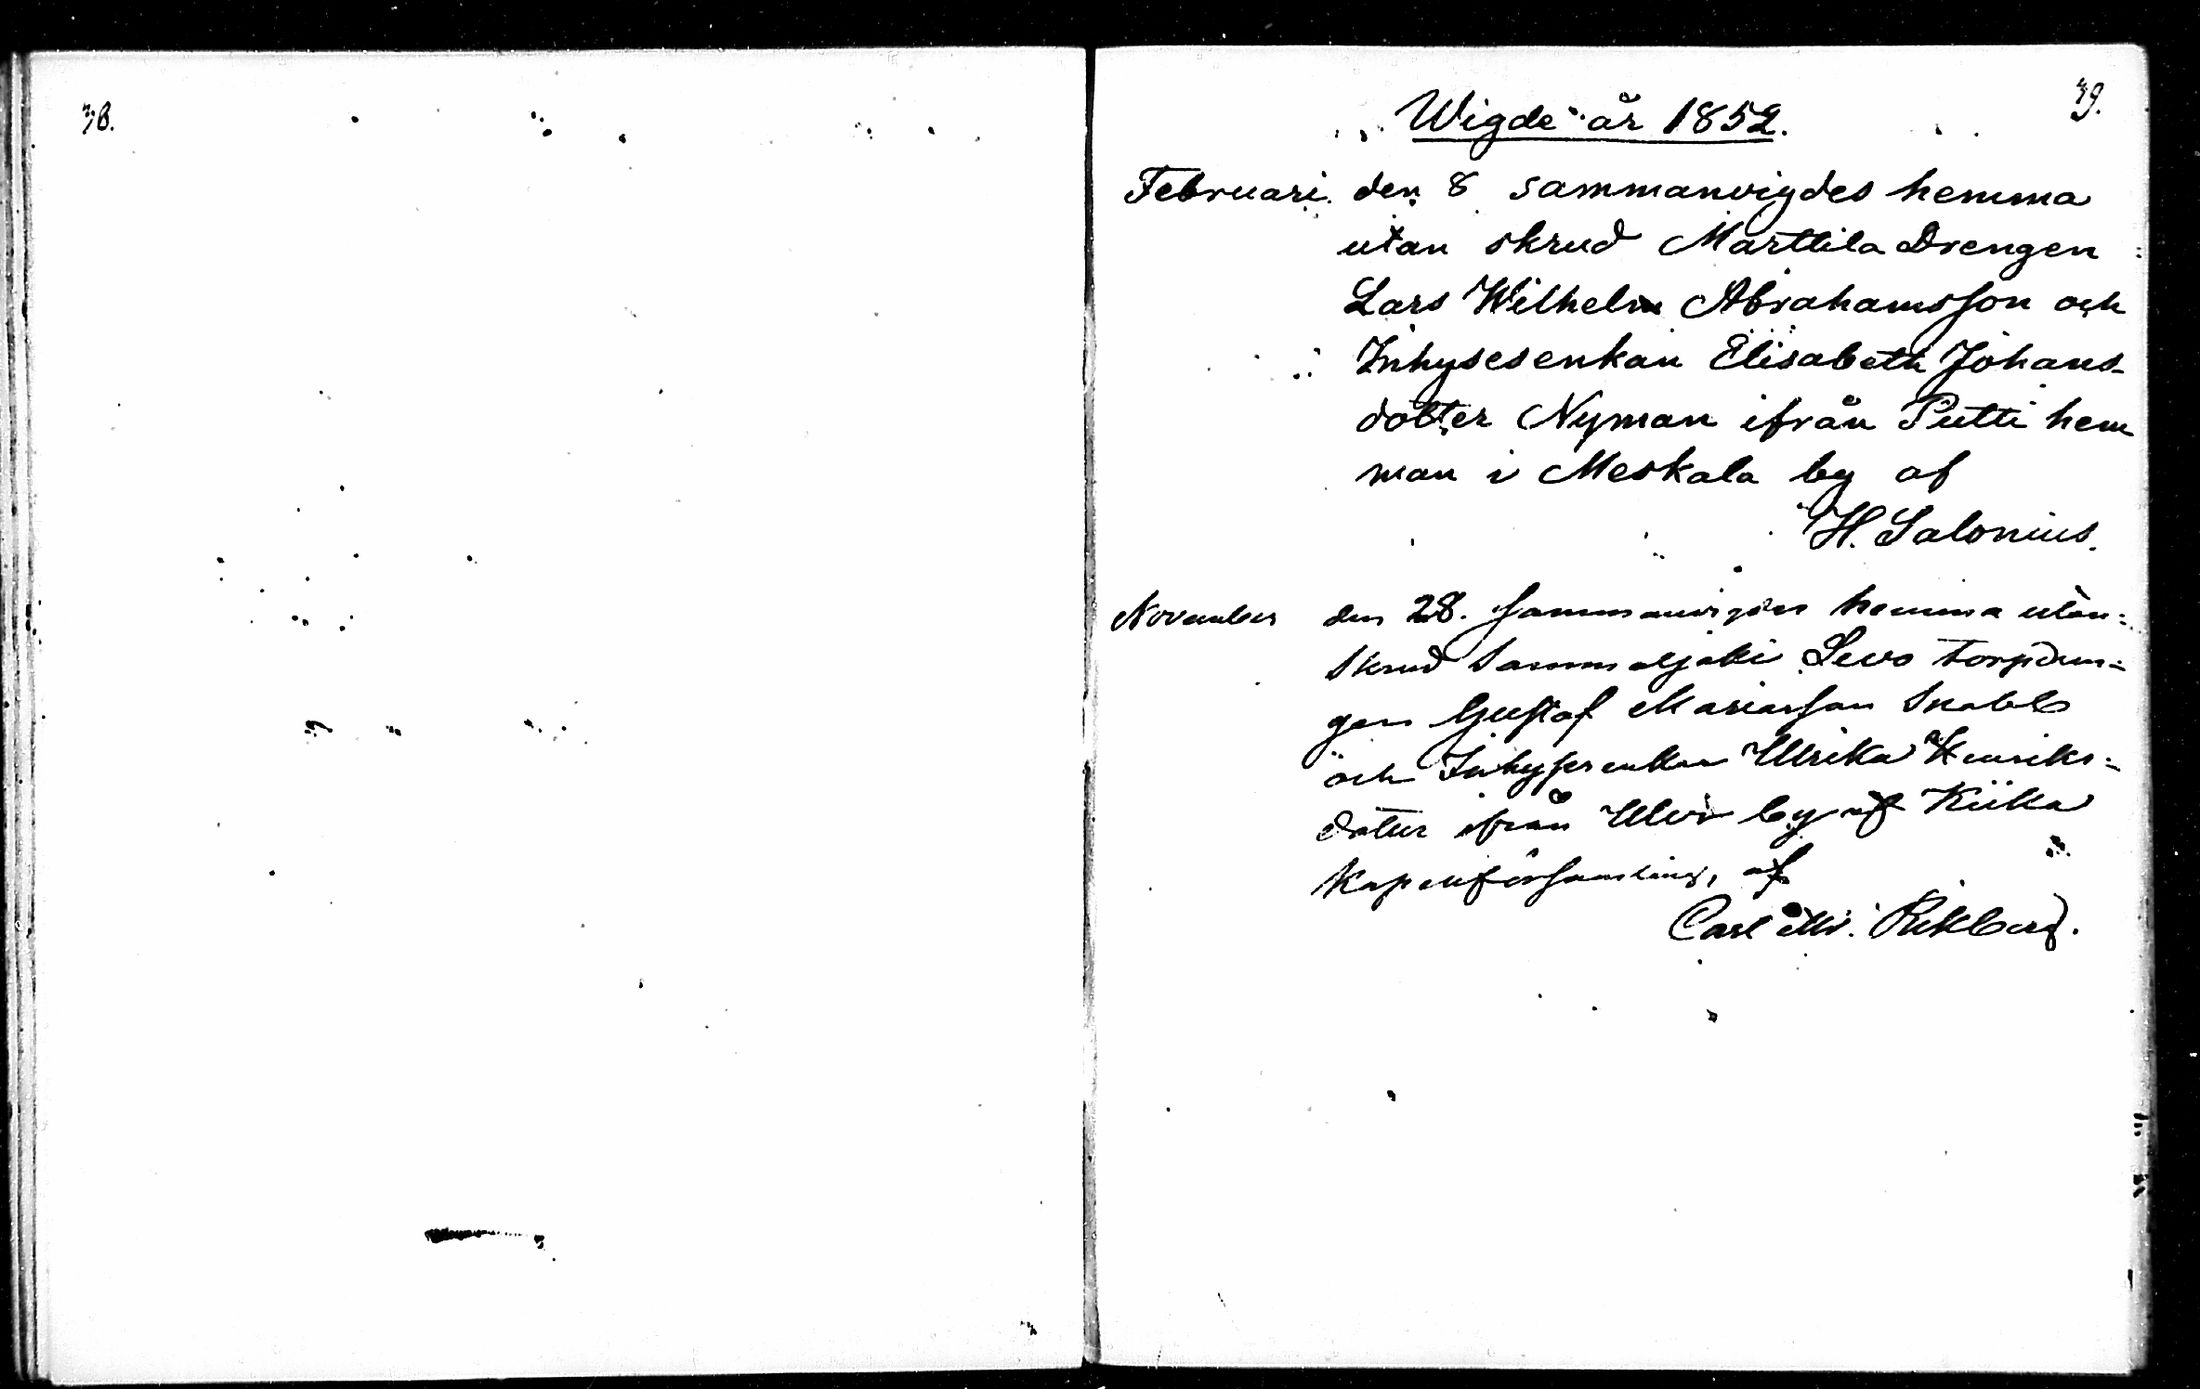 38.
39.
Wigde år 1852.
Februari den 8 sammanvigdes hemma
utan skrud Marttila Drengen
Lars Wilhelm Abrahamsson och
Inhysesenkan Elisabeth Johans-
dotter Nyman ifrån Putti hem
man i Meskala by af
H. Salonius.
November den 28. sammanvigdes hemma utan:
skrud Sammaljoki Levo torpdren:
gen Gustaf Mariasson Snabb
och Inhysesenkan Ulrika Henriks:
dotter ifrån Ulvi by af Kiikka
Kapellförsamling, af
Carl